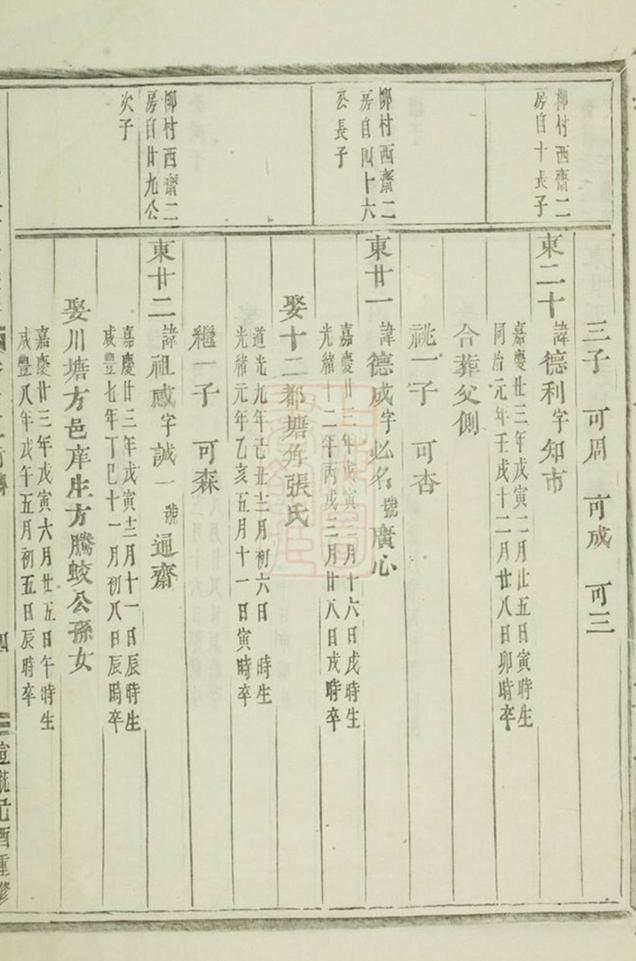 三子 可周 可成 可三
柳村西齋二
房自十長子
東二十 諱德利字知市
嘉慶廿三年戊寅二月廿五日寅時生
同治元年壬戌十二月廿八日卯時卒
合葬父側
祧一子 可杏
柳村西齋二
房自四十六
公長子
東廿一 諱德成字必名號廣心
嘉慶廿三年戊寅 月十六日戌時生
光緒十二年丙戌三月廿八日戌時卒
娶十二都塘角張氏
道光九年己丑十二月初六日 時生
光緒元年乙亥五月十一日寅時卒
繼一子 可森
柳村西齋二
房自廿九公
次子
東廿二 諱祖咸字誠一號通齋
嘉慶廿三年戊寅十二月十一日辰時生
咸豐七年丁巳十一月初八日辰時卒
娶川塘方邑庠生方騰蛟公孫女
嘉慶廿三年戊寅六月廿五日午時生
咸豐八年戊午五月初五日辰時卒
四
宣統己酉重修